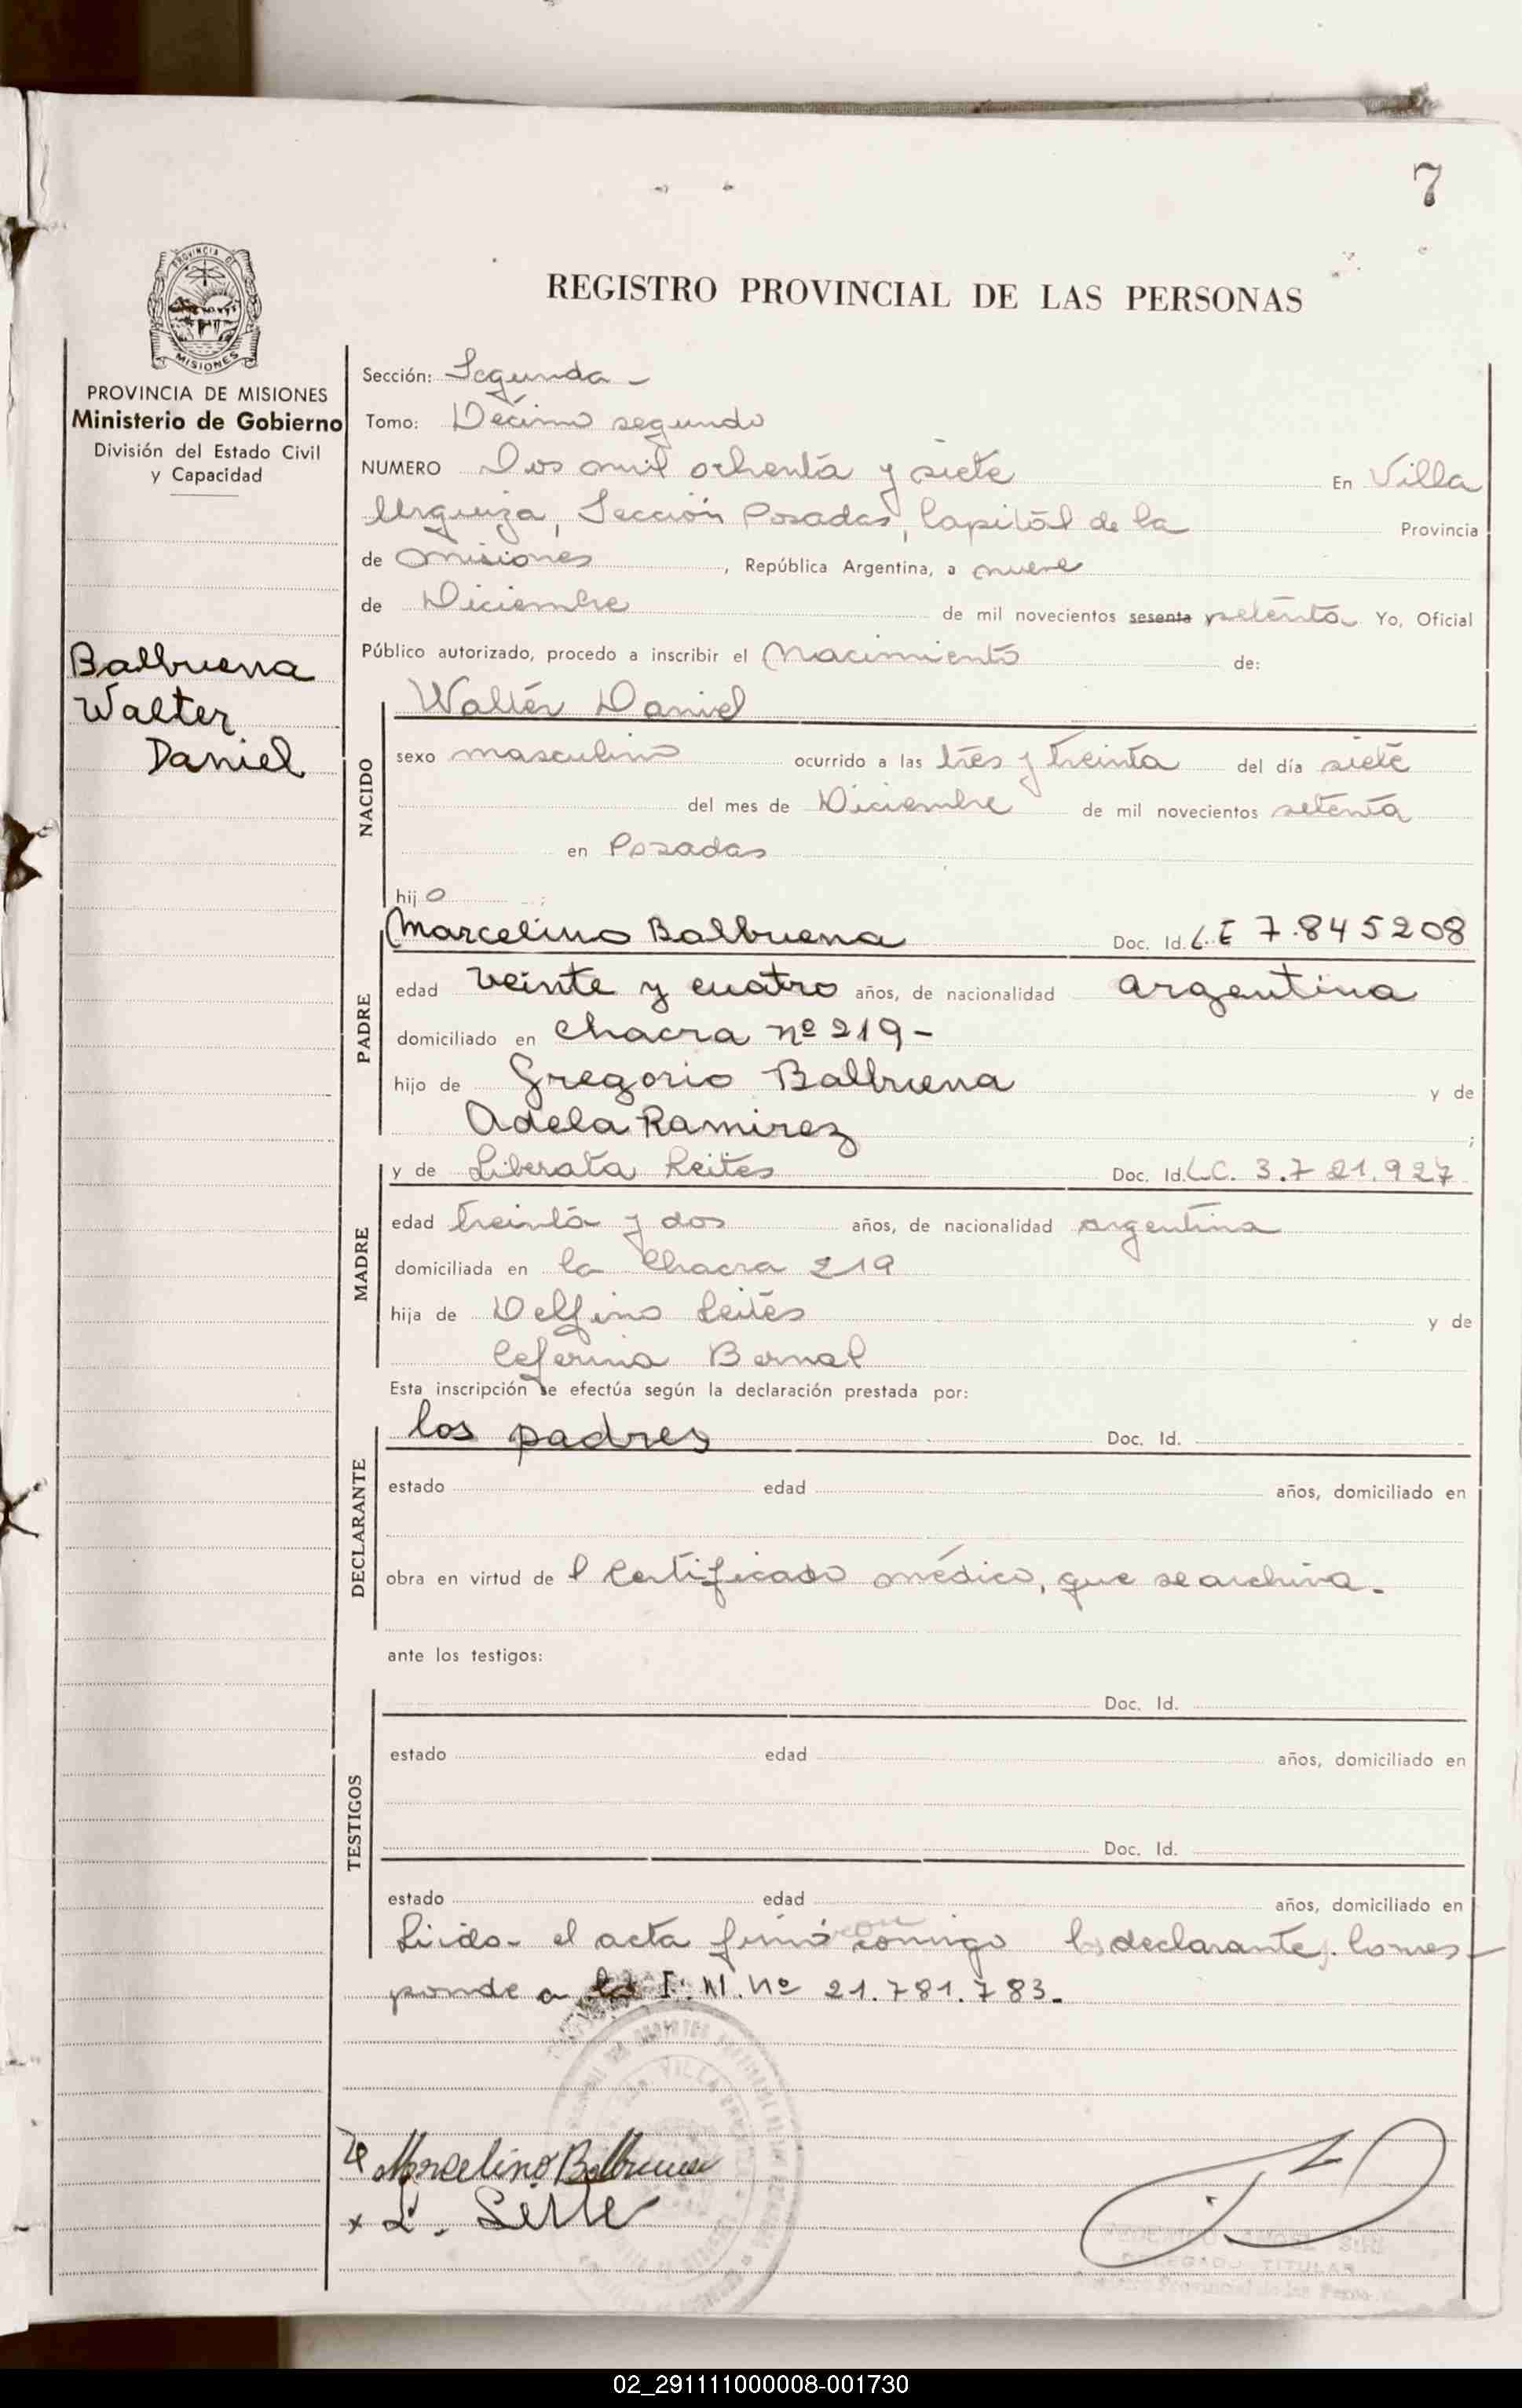 7
PROVINCIA DE
MISIONES
REGISTRO PROVINCIAL DE LAS PERSONAS
PROVINCIA DE MISIONES
Ministerio de Gobierno
División del Estado Civil
y Capacidad
Balbuena
Walter
Daniel
Sección: Segunda -
Tomo: Décimo segundo
NUMERO Dos mil ochenta y siete En Villa
Urquiza, Sección Posadas, Capital de la Provincia
de Misiones, República Argentina, a nueve
de Diciembre de mil novecientos sesenta setenta Yo, Oficial
Público autorizado, procedo a inscribir el Nacimiento de:
NACIDO
Walter Daniel
sexo masculino ocurrido a las tres y treinta del día siete
del mes de Diciembre de mil novecientos setenta
en Posadas
hijo ;
PADRE
Marcelino Balbuena Doc. Id. L.E 7.845208
edad veinte y cuatro años, de nacionalidad argentina
domiciliado en chacra nº 219-
hijo de Gregorio Balbuena y de
Adela Ramirez ;
MADRE
y de Liberata Leites Doc. Id. L.C. 3.721.927
edad treinta y dos años, de nacionalidad argentina
domiciliada en la Chacra 219
hija de Delfino Leites y de
Ceferina Bernal
Esta inscripción se efectúa según la declaración prestada por:
DECLARANTE
los padres Doc. Id.
estado edad años, domiciliado en
obra en virtud de l Certificado médico, que se archiva.
ante los testigos:
TESTIGOS
Doc. Id.
estado edad años, domiciliado en
Doc. Id.
estado edad años, domiciliado en
Leida el acta firmó conmigo declarante. Corres-
ponde a I. N. Nº 21.781.783.
VILLA
Marcelino Balbuena
x L.
DELEGADO TITULAR
02_291111000008-001730